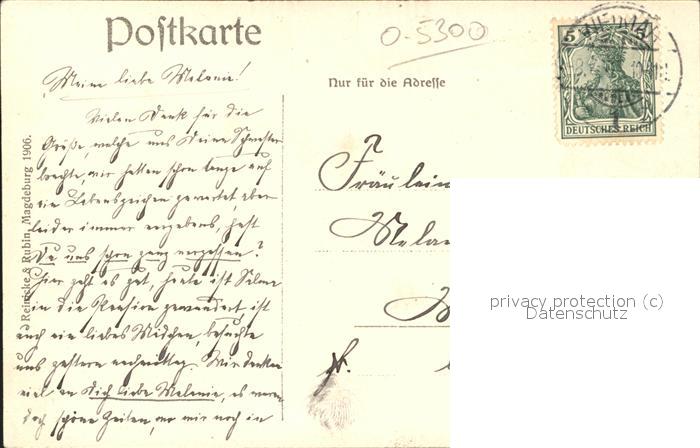 Postkarte
0-5300
Nur für die Adresse
5
DEUTSCHES REICH
WEIMAR
1
Reinicke & Rubin, Magdeburg 1906.
Meine liebe Melanie!
Vielen Dank für die
Grüße, welche uns Deine Schwester
brachte, wir hatten schon lange auf
ein Lebenszeichen gewartet, aber
leider immer vergebens, hast
Du uns schon ganz vergessen?
Hier geht es gut, heute ist Selma
in die Pension gewandert ist
auch ein liebes Mädchen, besuchte
uns gestern nachmittag. Wir denken
viel an Dich liebe Melanie, es waren
doch schöne Zeiten, wo wir noch in
Fräulein
Melan
privacy protection (c)
Datenschutz